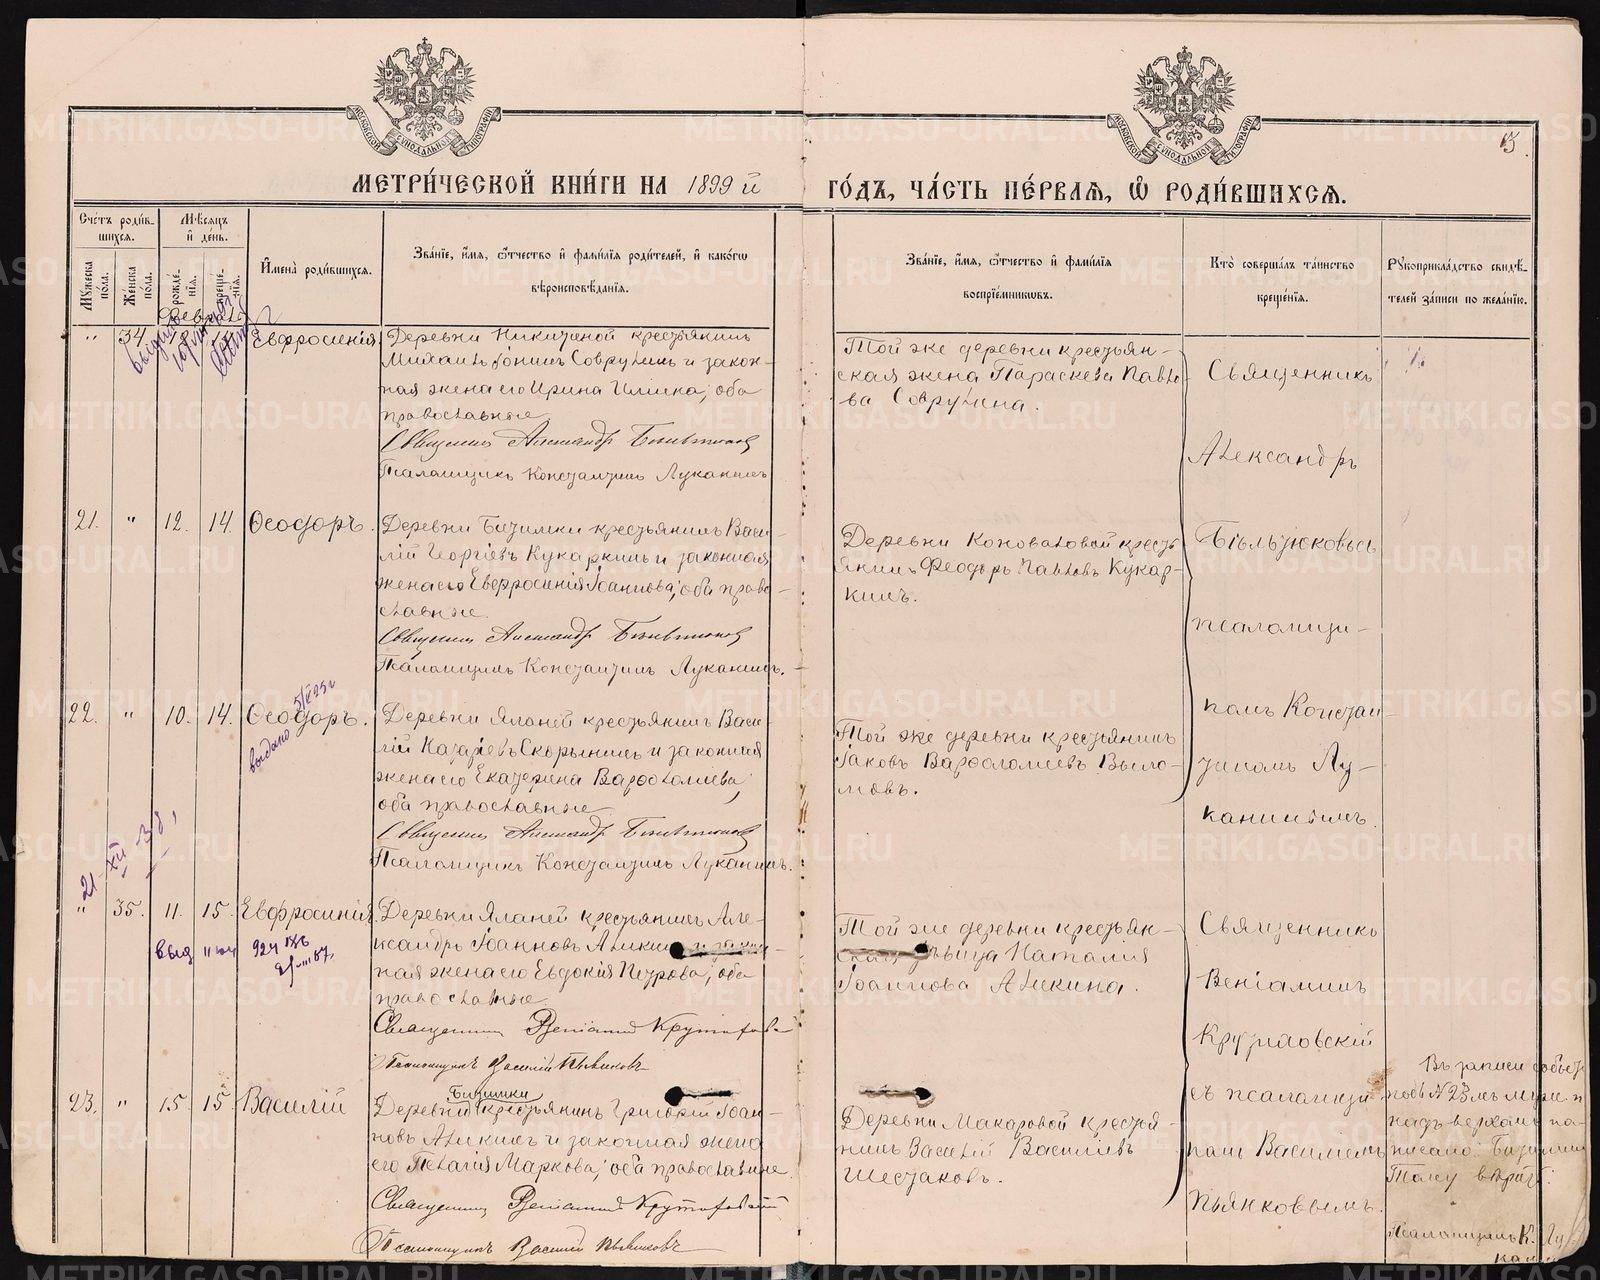 МЕТРИ́ЧЕСКОЙ КНИ́ГИ НА 1899 й ГО́ДЪ, ЧА́СТЬ ПЕ́РВАѦ, Ѽ РОДИ́ВШИХСѦ.
13
Сче́тъ роди́в-
шихсѧ.
Мѣсѧцъ
и҆ де́нь.
Мꙋжеска по́ла.
Же́нска по́ла.
рожде́-
нїѧ.
креще́-
нїѧ.
И҆мена̀ роди́вшихсѧ.
Зва́нїе, и҆́мѧ, ѻ҆́тчество и҆ фами́лїѧ роди́телей, и҆ како́гѡ
вѣроисповѣ́данїѧ.
Зва́нїе, и҆́мѧ, ѻ҆́тчество и҆ фами́лїѧ
воспрїе́мникѡвъ.
Кто̀ соверша́лъ та́инство
креще́нїѧ.
Рꙋкоприкла́дство свидѣ́-
телей за́писи по жела́нїю.
Февраль
" 34. Евфросинія
Деревни Никитиной крестьянинъ
Михаилъ Іонинъ Соврулинъ и закон-
ная жена его Ирина Ильина; оба
православные
Священникъ Александръ Бѣльтюковъ
Псаломщикъ Константинъ Луканинъ
Той же деревни крестьян-
ская жена Параскева Павло-
ва Соврулина.
Священникъ
Александръ
Бѣльтюковъ съ
псаломщи-
комъ Констан-
тиномъ Лу-
канинымъ.
21. " 12. 14. Ѳеодоръ.
Деревни Бизимки крестьянинъ Васи-
лій Георгіевъ Кукаркинъ и законная
жена его Евфросинія Іоаннова; оба право-
славные.
Священникъ Александръ Бѣльтюковъ
Псаломщикъ Константинъ Луканинъ.
Деревни Коноваловой кресть-
янинъ Феодоръ Павловъ Кукар-
кинъ.
22. " 10. 14. Ѳеодоръ.
выдано
Деревни Яланей крестьянинъ Васи-
лій Скорынинъ и законная
жена его Екатерина Варѳоломеева;
оба православные
Священникъ Александръ Бѣльтюковъ
Псаломщикъ Константинъ Луканинъ.
Той же деревни крестьянинъ
Іаковъ Варѳоломеевъ Выло-
мовъ.
21 XII 38,
" 35. 11. 15. Евфросинія
Деревни Яланей крестьянинъ Але-
ксандръ Іоанновъ Аликинъ и закон-
ная жена его Евдокія Петрова; оба
православные
Священникъ Веніаминъ Крутиховскій
Псаломщикъ Василій Пьянковъ
Той же деревни крестьян-
ская дѣвица Наталія
Іоаннова Аликина.
Священникъ
Веніаминъ
Крутиховскій
съ псаломщи-
комъ Василіемъ
Пьянковымъ.
23. " 15. 15 Василій
Бизимки
Деревни крестьянинъ Григорій Іоан-
новъ Аликинъ и законная жена
его Пелагія Маркова; оба православные
Священникъ Веніаминъ Крутиховскій
Псаломщикъ Василій Пьянковъ
Деревни Макаровой крестья-
нинъ Василій Васильевъ
Шестаковъ.
Въ записи
подъ № 23
надъ верхомъ на-
писано: Бизимки
Тому вѣрить.
Псаломщикъ К. Лу
канинъ
METRIKI.GASO-URAL.RU